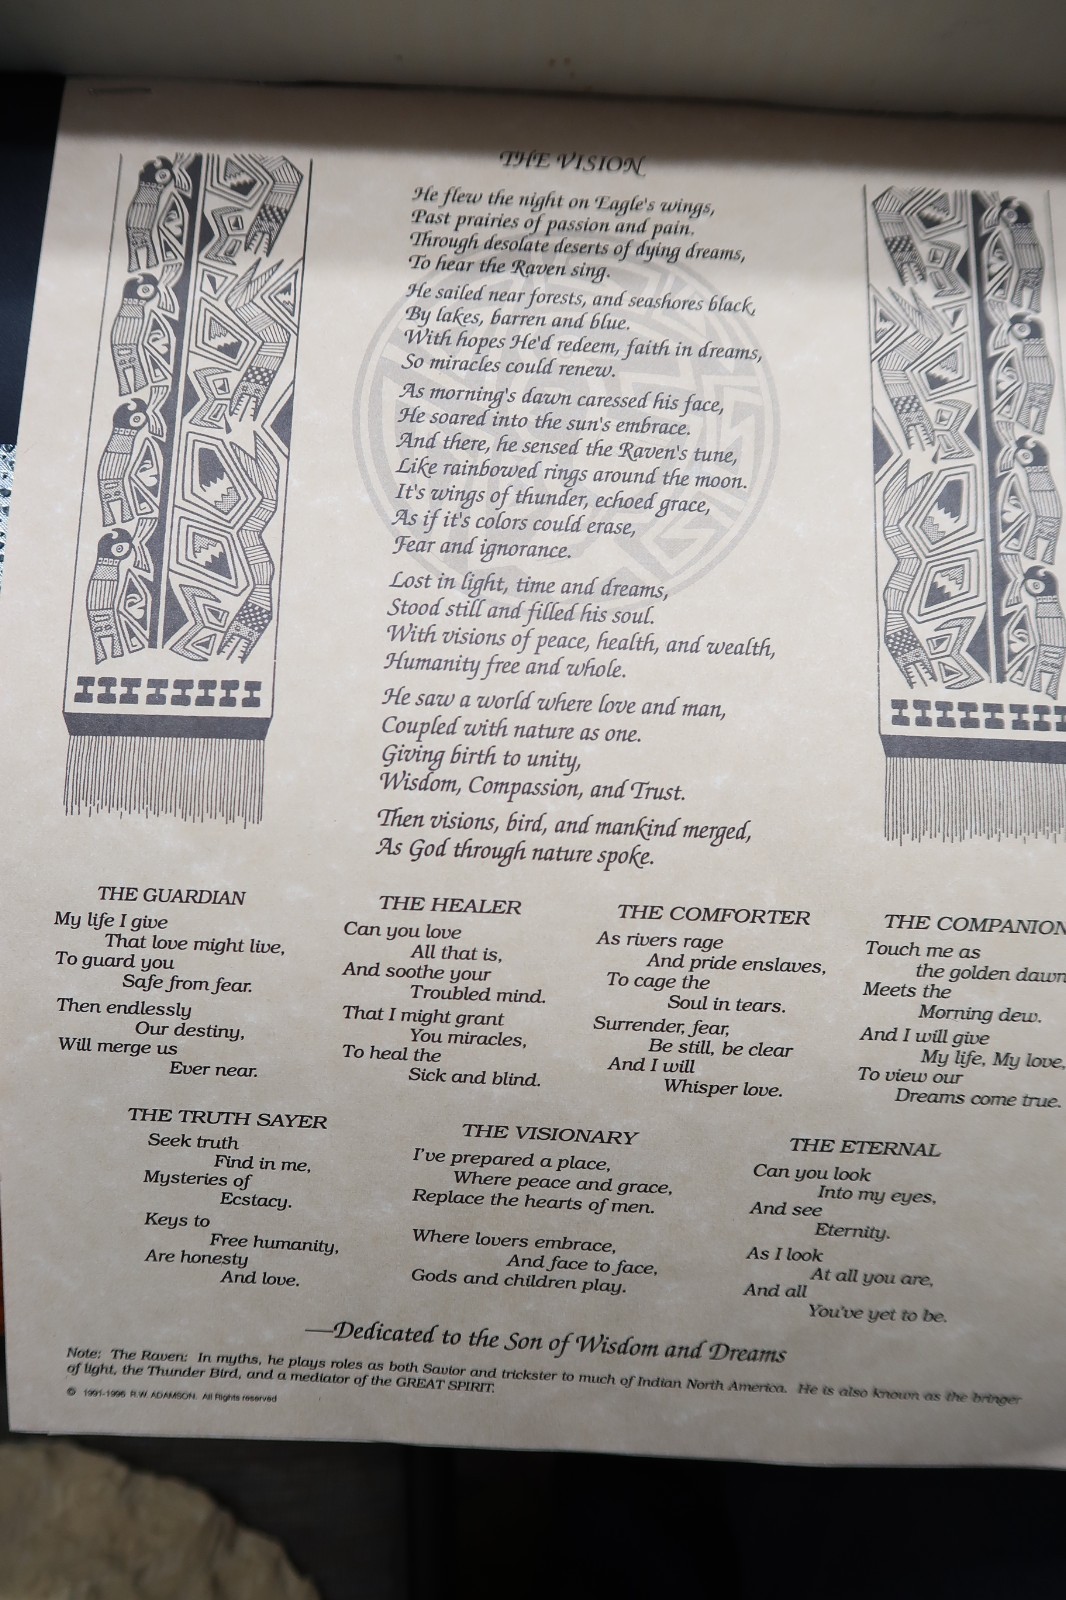 THE VISION
He flew the night on Eagle's wings,
Past prairies of passion and pain.
Through desolate deserts of dying dreams,
To hear the Raven sing.
He sailed near forests, and seashores black,
By lakes, barren and blue.
With hopes He'd redeem, faith in dreams,
So miracles could renew.
As morning's dawn caressed his face,
He soared into the sun's embrace.
And there, he sensed the Raven's tune,
Like rainbowed rings around the moon.
It's wings of thunder, echoed grace,
As if it's colors could erase,
Fear and ignorance.
Lost in light, time and dreams,
Stood still and filled his soul.
With visions of peace, health, and wealth,
Humanity free and whole.
He saw a world where love and man,
Coupled with nature as one.
Giving birth to unity,
Wisdom, Compassion, and Trust.
Then visions, bird, and mankind merged,
As God through nature spoke.
THE GUARDIAN
My life I give
That love might live,
To guard you
Safe from fear.
Then endlessly
Our destiny,
Will merge us
Ever near.
THE HEALER
Can you love
All that is,
And soothe your
Troubled mind.
That I might grant
You miracles,
To heal the
Sick and blind.
THE COMFORTER
As rivers rage
And pride enslaves,
To cage the
Soul in tears.
Surrender, fear,
Be still, be clear
And I will
Whisper love.
THE COMPANION
Touch me as
the golden dawn
Meets the
Morning dew.
And I will give
My life, My love,
To view our
Dreams come true.
THE TRUTH SAYER
Seek truth
Find in me,
Mysteries of
Ecstacy.
Keys to
Free humanity,
Are honesty
And love.
THE VISIONARY
I've prepared a place,
Where peace and grace,
Replace the hearts of men.
Where lovers embrace,
And face to face,
Gods and children play.
THE ETERNAL
Can you look
Into my eyes,
And see
Eternity.
As I look
At all you are,
And all
You've yet to be.
—Dedicated to the Son of Wisdom and Dreams
Note: The Raven: In myths, he plays roles as both Savior and trickster to much of Indian North America. He is also known as the bringer
of light, the Thunder Bird, and a mediator of the GREAT SPIRIT.
© 1991-1996 R.W. ADAMSON. All Rights reserved